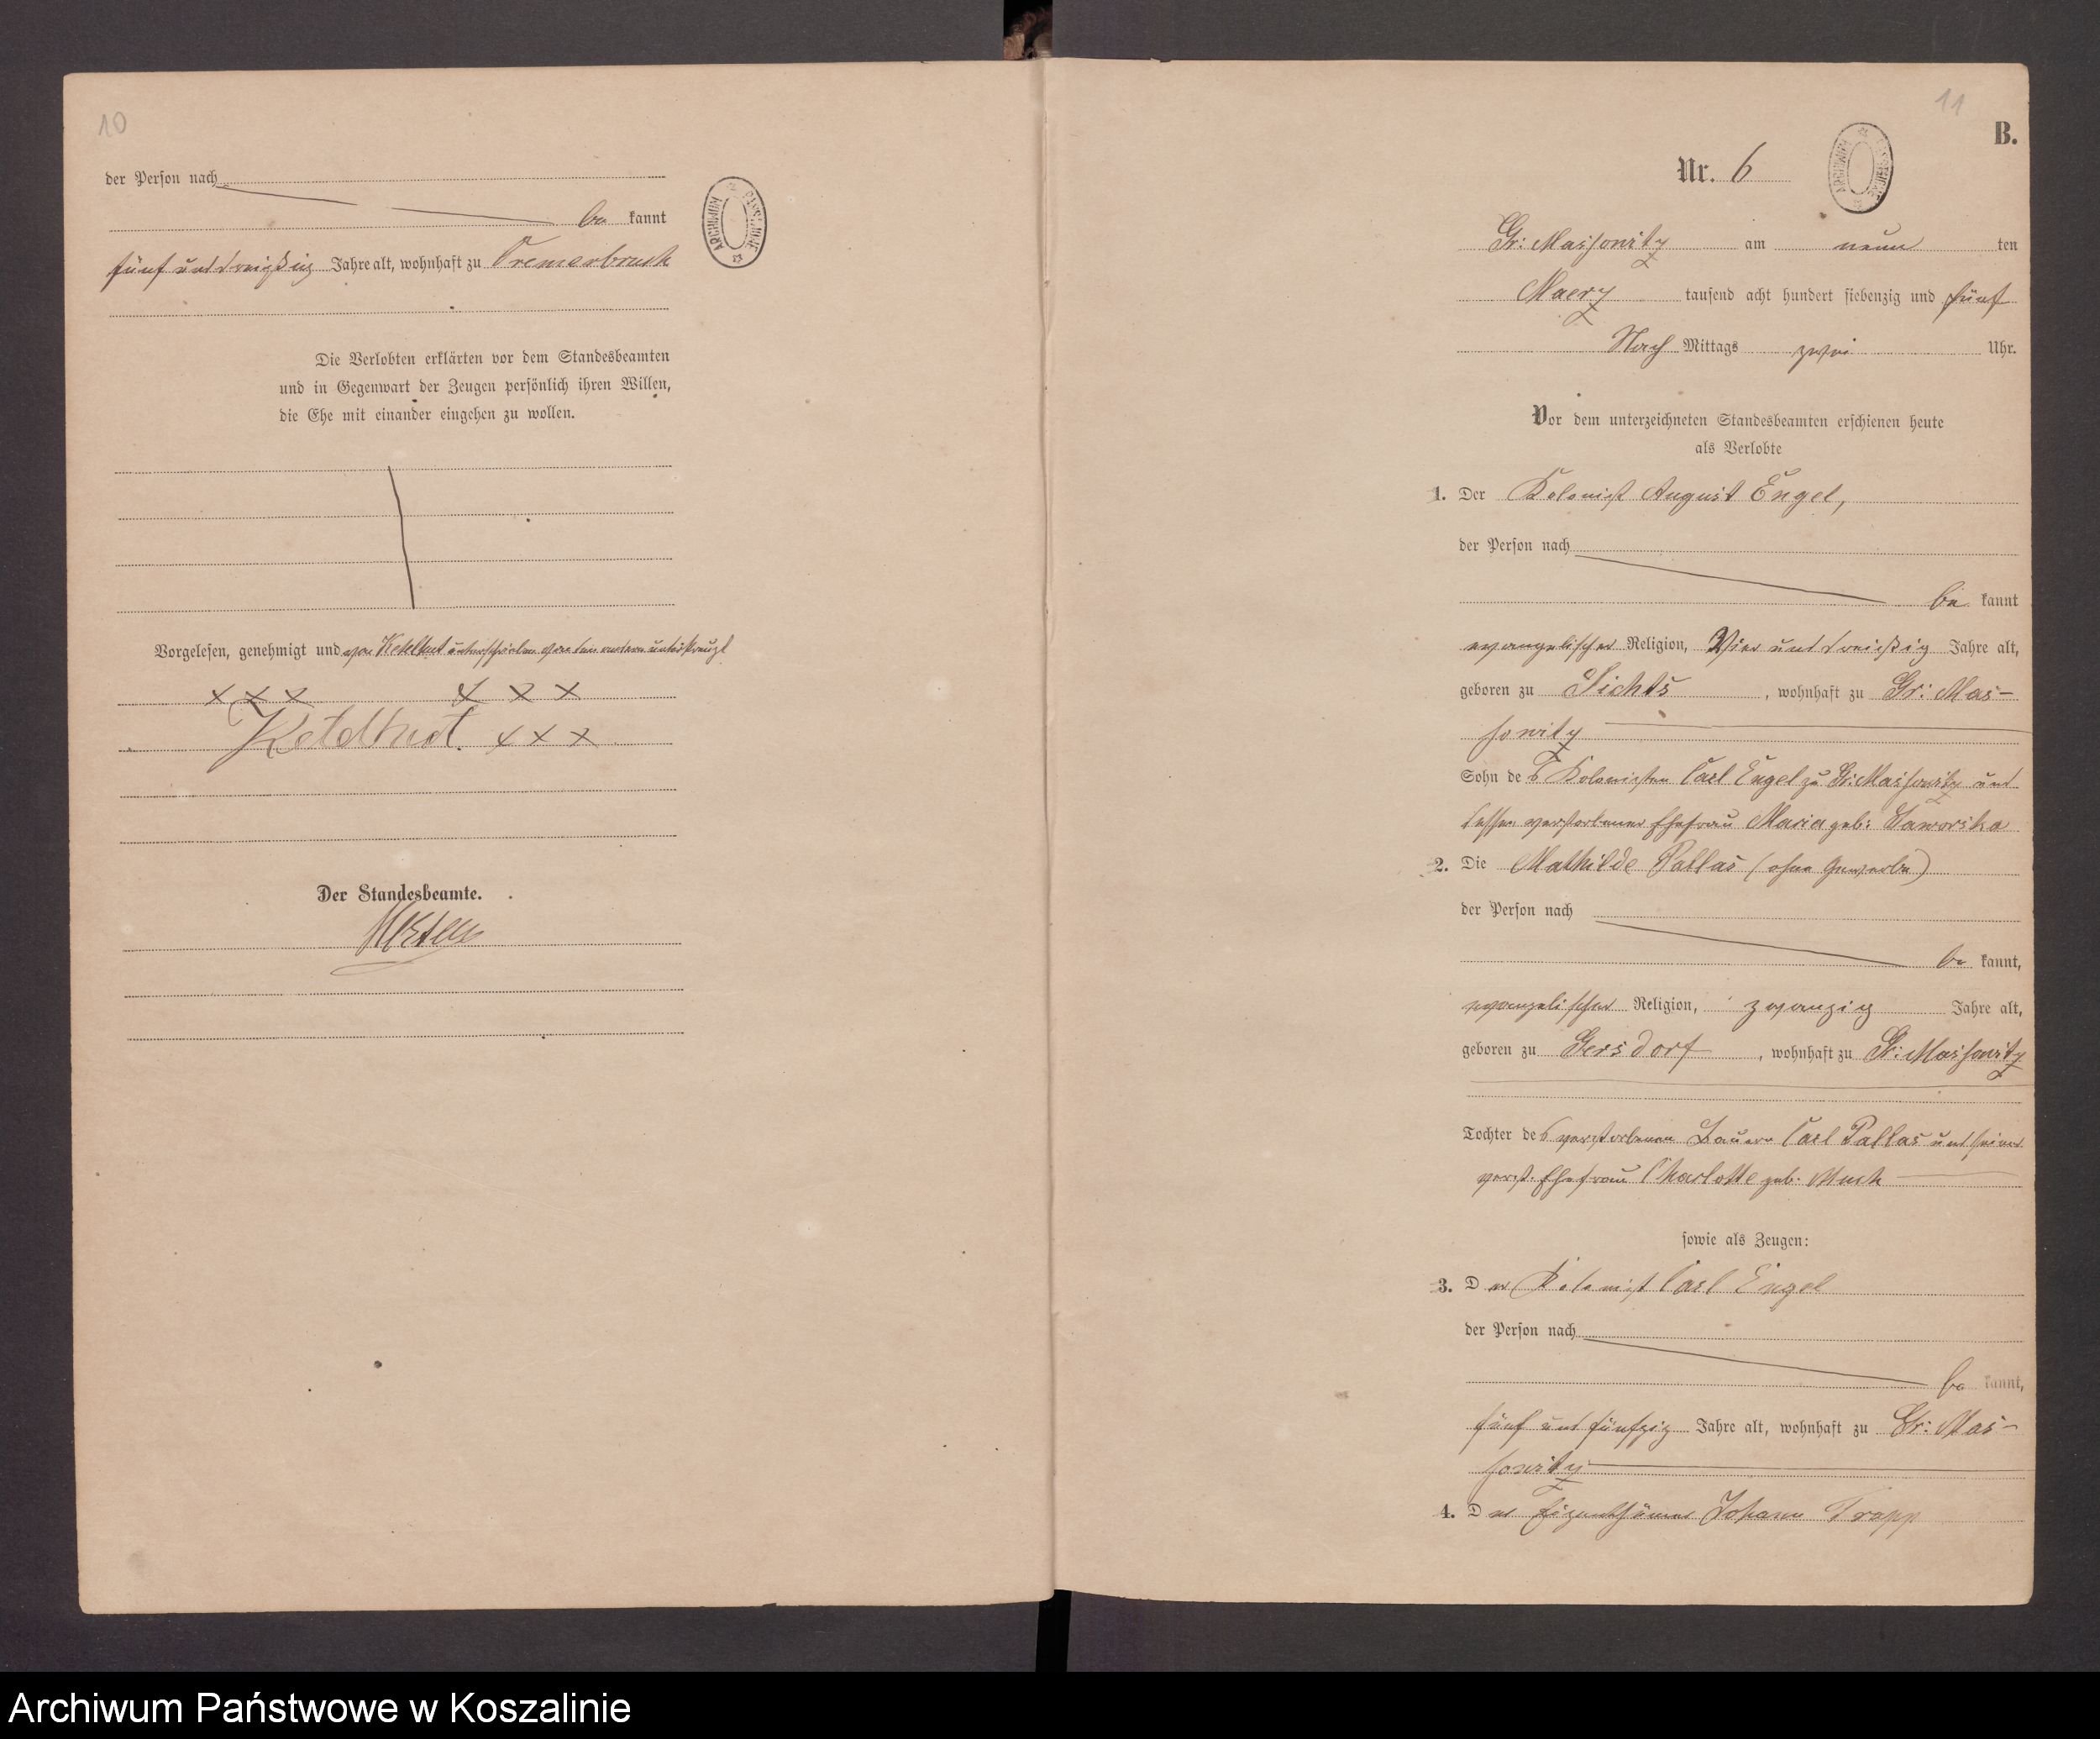 10
der Person nach
be kannt
fünf und dreißig Jahre alt, wohnhaft zu Tremerbruch
Die Verlobten erklärten vor dem Standesbeamten
und in Gegenwart der Zeugen persönlich ihren Willen,
die Ehe mit einander eingehen zu wollen.
Vorgelesen, genehmigt und von Ketelhut unterschrieben von den andern unterkreuzt
x x x x x x
Ketelhut. x x x
Der Standesbeamte.
ARCHIWUM
11
B.
Nr. 6
ARCHIWUM
Gr: Massowitz am neun ten
Maerz tausend acht hundert siebenzig und fünf
Nach Mittags zwei Uhr.
Vor dem unterzeichneten Standesbeamten erschienen heute
als Verlobte
1. Der Kolonist August Engel,
der Person nach
be kannt
evangelischer Religion, Vier und dreißig Jahre alt,
geboren zu Lichts, wohnhaft zu Gr: Mas-
sowitz
Sohn des Kolonisten Carl Engel zu Gr: Massowitz und
dessen verstorbener Ehefrau Maria geb: Jaworska
2. Die Mathilde Pallas (ohne Gewerbe)
der Person nach
be kannt,
evangelischer Religion, zwanzig Jahre alt,
geboren zu Gersdorf, wohnhaft zu Gr: Massowitz
Tochter des verstorbenen Bauern Carl Pallas und seiner
verst. Ehefrau Charlotte geb. Much
sowie als Zeugen:
3. Der Kolonist Carl Engel
der Person nach
be kannt,
fünf und fünfzig Jahre alt, wohnhaft zu Gr: Mas-
sowitz
4. Der Eigenthümer Johann Trapp
Archiwum Państwowe w Koszalinie